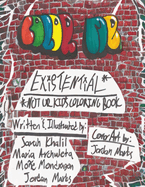 COLOR ME
EXISTENTIAL*
*NOT UR KIDS COLORING BOOK
Written & Illustrated By:
Sarah Khalil
Maria Archuleta
Mope Mondragon
Jordan Marks
Cover Art by:
Jordan Marks